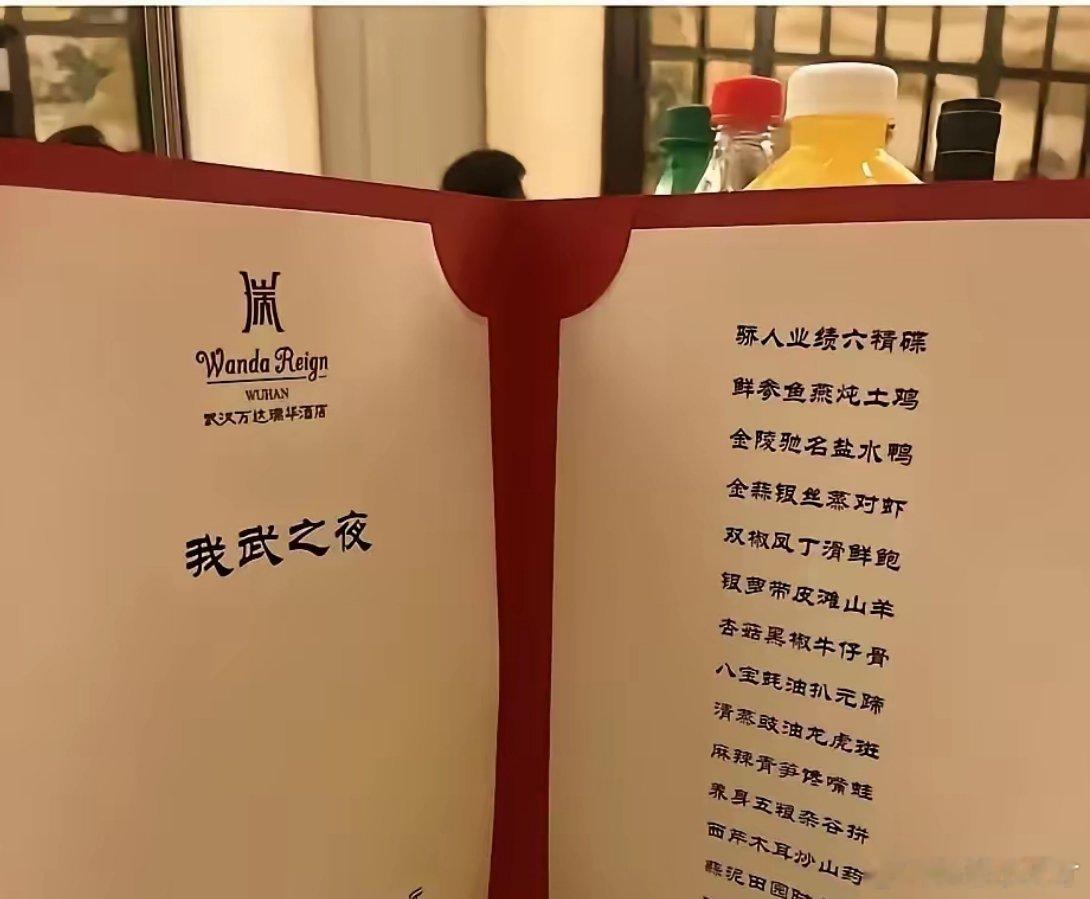 瑞
Wanda Reign
WUHAN
武汉万达瑞华酒店
我武之夜
骄人业绩六精碟
鲜参鱼燕炖土鸡
金陵驰名盐水鸭
金蒜银丝蒸对虾
双椒凤丁滑鲜鲍
银萝带皮滩山羊
杏菇黑椒牛仔骨
八宝蚝油扒元蹄
清蒸豉油龙虎斑
麻辣青笋馋嘴蛙
养身五粮杂谷拼
西芹木耳炒山药
蒜泥田园